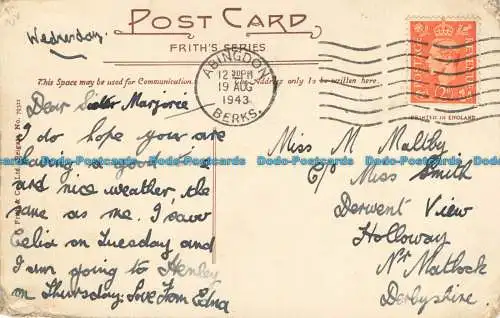 Wednesday.
POST CARD
FRITH'S SERIES
This Space may be used for Communication.
The Address only to be written here.
ABINGDON
BERKS.
12 PM
19 AUG
1943
POSTAGE
REVENUE
2D
PRINTED IN ENGLAND
Dear Sister Marjorie
I do hope you are
having a good
and nice weather, the
same as me. I saw
Celia on Tuesday and
I am going to Henley
on Thursday. Love from Edna
Miss M Maltby
C/o Miss Smith
Derwent View
Holloway
Nr Matlock
Derbyshire.
Dodo-Postcards Dodo-Postcards Dodo-Postcards Dodo-Postcards Dodo-Postcards